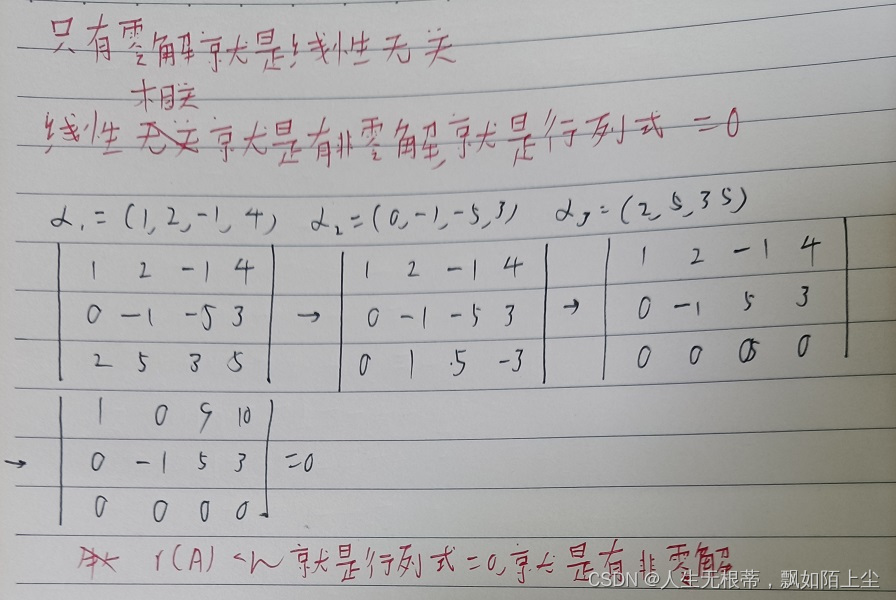 只有零解就是线性无关
相关
线性无关就是有非零解,就是行列式 =0
α₁=(1,2,-1,4) α₂=(0,-1,-5,3) α₃=(2,5,3 5)
1 2 -1 4 1 2 -1 4 1 2 -1 4
0 -1 -5 3 → 0 -1 -5 3 → 0 -1 5 3
2 5 3 5 0 1 5 -3 0 0 0 0
1 0 9 10
→ 0 -1 5 3 =0
0 0 0 0
r(A)<n 就是行列式=0,就是有非零解
CSDN @人生无根蒂,飘如陌上尘